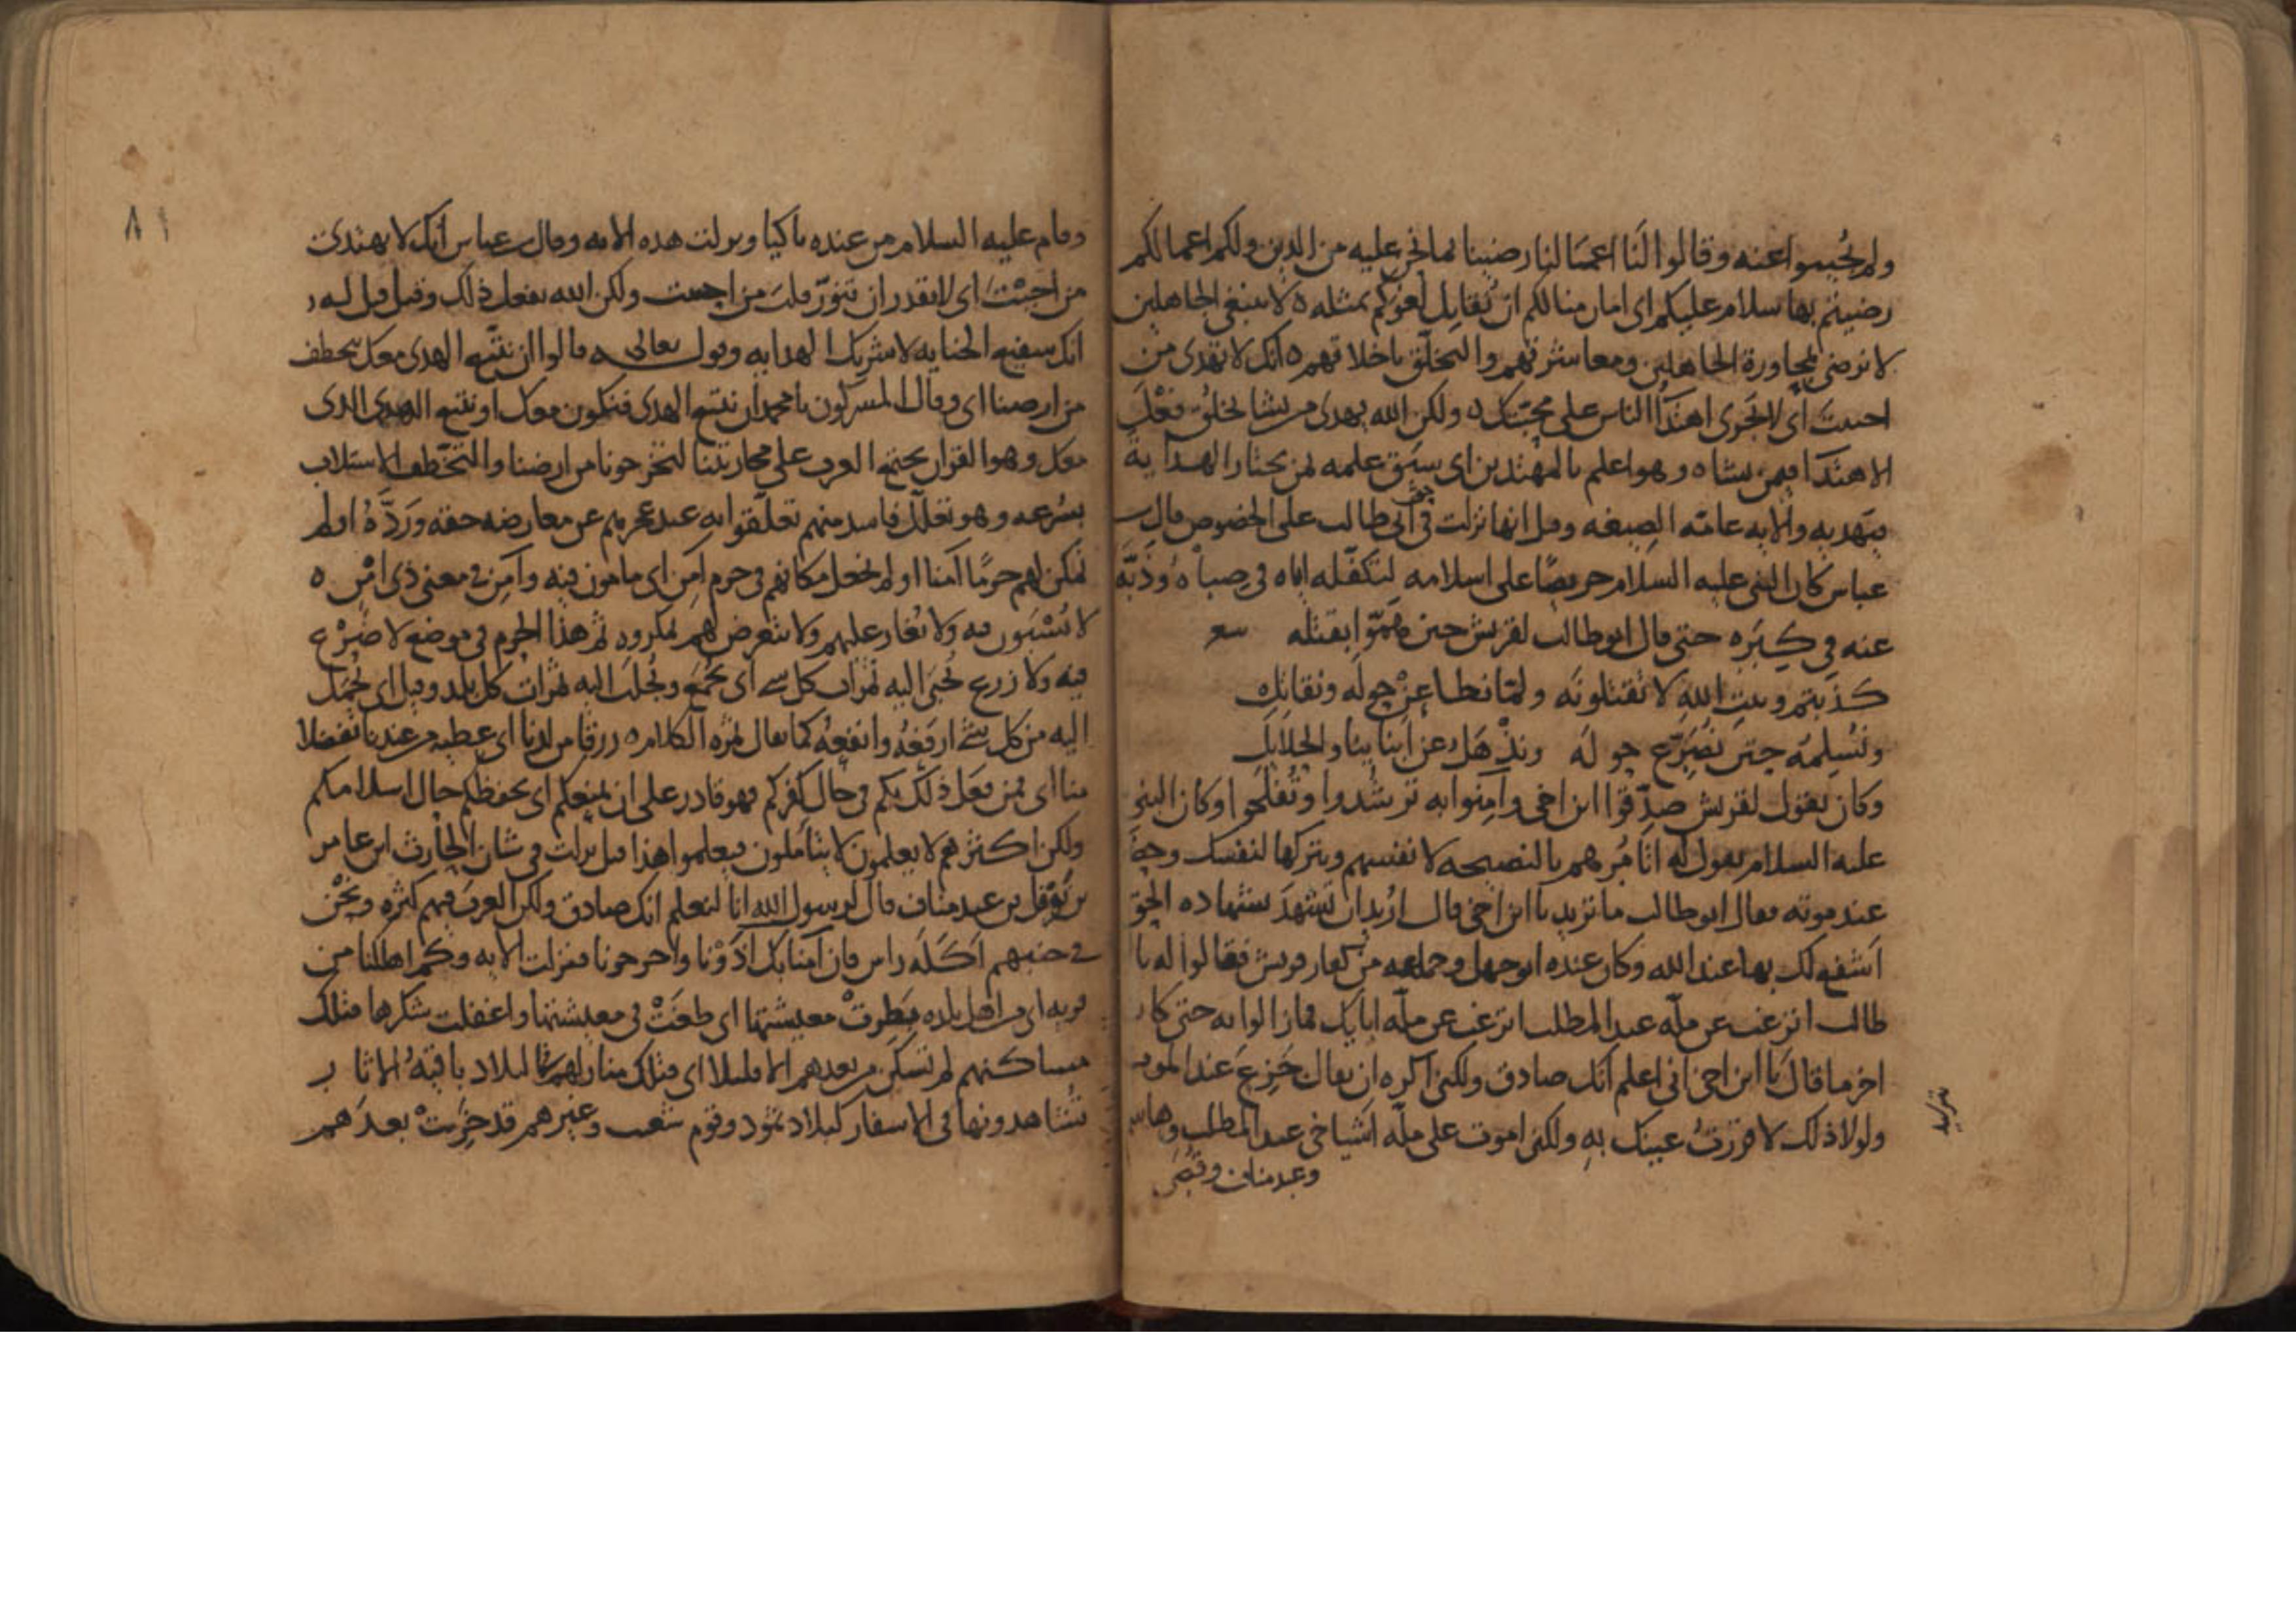 ولم يُجيبوا عنه وقالوا لَنَا اعمالنا رضينا لما نحن عليه من الدين ولكم اعمالكم
رضيتم بها سلام عليكم اى امان منا لكم ان نُقابل لغوكم بمثله ه لا نبتغى الجاهلين
لا نرضى مجاورة الجاهلين ومعاشرتهم والتخلّق باخلاقهم ه انك لا تهدى من
احببتَ اى اهتدَا الناس على محبّتك ه ولكن الله يهدى من يشا يخلُق فعْلَ
الاهتدَا فيمن يشا ه وهو اعلم بالمهتدين اى سبَق علمه لمن يختار الهداية
فيهديه والايه عامّه الصيغه وقيل انها نزلت فى حق ابى طالب على الخصوص قال
عباس كان النبى عليه السلام حريصًا على اسلامه لتكفّله اياه فى صباه وذَبّه
عنه فى كِبَره حتى قال ابو طالب لقريش حين همّوا بقتله شعر
كذبتم وبيتِ اللهِ لا تقتلونَه ولمّا نطاعِنْ حولَه ونقاتِل
ونُسلِمُه حتى نُصَرّع حولَه ونذْهَل عن ابنايِنا والحلايِل
وكان يقول لقريش صدّقوا ابن اخى وآمِنوا به ترشُدوا وتُفْلحوا وكان النبى
عليه السلام يقول له اتَامُرهم بالنصيحه لانفسهم وتتركها لنفسك
عند موته فقال ابو طالب ما تريد يا ابن اخى قال اريد ان تَشهدَ شهاده الحق
اَشفع لك بها عند الله وكان عنده ابو جهل وجماعه من كفار قريش فقالوا له يا
طالب اترغب عن ملّه عبد المطلب اترغب عن ملّه ابايك فما زالوا به حتى كان
اخر ما قال يَا ابن اخى انى اعلم انك صادق ولكنى اكره ان يقال جَزِعَ عند الموت
ولولا ذلك لاقررتُ عينك بهِ ولكنى اموت على ملّه اشياخى عبد المطلب وهاشم
وعبد مناف وقُصَى
وقام عليه السلام من عنده باكيا ونزلت هذه الايه وقال عباس انك لا تهتدى
من احببْتَ اى لا تقدر ان تنوّر قلبَ من احببت ولكن الله يفعل ذلك وقيل قيل له
انك شفيع الجنايه لا شريك الهدايه وقوله تعالى ه قالوا ان نتّبع الهدى معك نتخطف
من ارضنا اى وقال المشركون يا محمد ان نتبع الهدى فنكون معك او نتبع الهدى الذى
معك وهو القرآن يجتمع العرب على محاربتنا لتخرجونا من ارضنا والتخّطف الاستلاب
بسُرعه وهو تعلّلٌ فاسد منهم تعلّقوا به عند عجزهم عن معارضه حقه ورَدَّهُ اولم
نمكن لهم حرمًا آمنا او لم نجعل مكانهم فى حرم امِن اى مامون فيه وآمِن فى معنى ذى امْن ه
لا يُسْبَون فيه ولا يُغار عليهم ولا يتعرض لهم بمكروهِ ثم هذا الحرم فى موضع لا ضَرْع
فيه ولا زرع تُجبَى اليه ثمرات كل شى اى تُجْمَع وتُجلَب اليه ثمرات كل بلد وقيل اى تُحْمَل
اليه من كل شئ ارفَعُهُ وانفعُهُ كما يقال ثمره الكلام ه رزقا من لدنا اى عطيه من عندنا تفضلا
منا اى فمن فعَل ذلك بكم فى حال كفركم فهو قادر على ان يمنعكم اى يحفظكم حال اسلامكم
ولكن اكثرهم لا يعلمون لا يتاملون فيعلموا هذا قيل نزلت فى شان الحارث ابن عامر
بن نَوْفل بن عبد مناف قال لرسول الله انا لنعلم انك صادق ولكن العرب فيهم كثره ونحْن
فى جنبهم اَكَلَه راس فان آمنا بك اذَوْنا واخرجونا فنزلت الايه وكم اهلكنا من
قريه اى من اهل بلده بَطِرتْ معيشتها اى طغَتْ فى معيشتها واغفلت شكرها فتلك
مساكنهم لم تسكَن من بعدهم الا قليلا اى فتلك منازلهم فى البلاد باقيهُ الاثار
تُشاهدونها فى الاسفار كبلاد ثمُود وقوم شعيب وغيرهم قد خَرِبَتْ بعدَهم
٨١